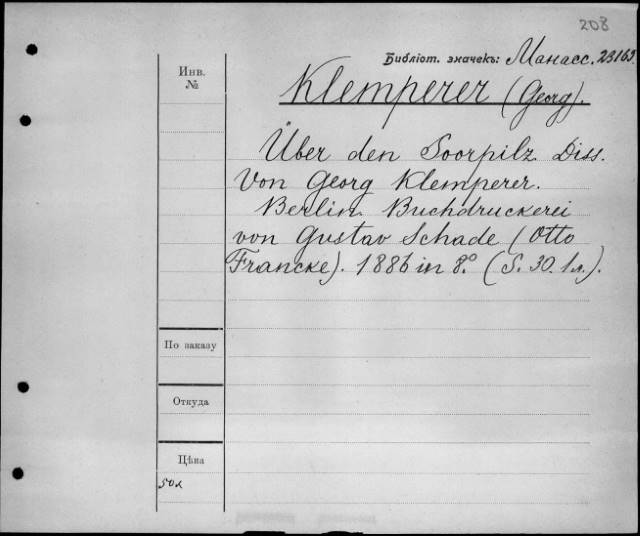 208
Библіот. значекъ: Манасс. 23163.
Инв.
№
Klemperer (Georg).
Über den Soorpilz. Diss.
Von Georg Klemperer.
Berlin. Buchdruckerei
von Gustav Schade (Otto
Francke). 1886 in 8.º (S. 30. 1 л.).
По заказу
Откуда
Цѣна
50 к